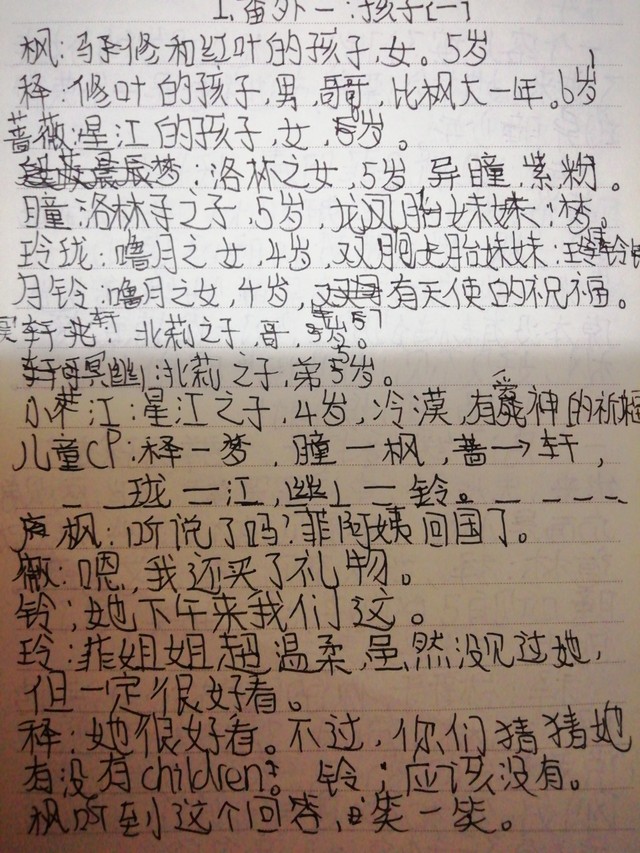 1.番外一:孩子(一)
枫:修和红叶的孩子,女。5岁
释:修叶的孩子,男,哥哥,比枫大一年。6岁
蔷薇:星江的孩子,女,5岁。
晨辰梦:洛林之女,5岁,异瞳,紫粉。
瞳:洛林之子,5岁,龙凤胎妹妹:梦。
玲珑:噜月之女,4岁,双胞胎妹妹:铃
月铃:噜月之女,4岁,有天使的祝福。
轩:北莉之子,哥,5岁。
冥幽:北莉之子,弟,5岁。
小江:星江之子,4岁,冷漠,有爱神的祈福
儿童CP:释一梦,瞳一枫,蔷→轩,
珑一江,幽一铃。
枫:听说了吗?菲阿姨回国了。
薇:嗯,我还买了礼物。
铃:她下午来我们这。
玲:菲姐姐超温柔,虽然没见过她,
但一定很好看。
释:她很好看。不过,你们猜猜她
有没有children? 铃:应该没有。
枫听到这个回答,笑一笑。